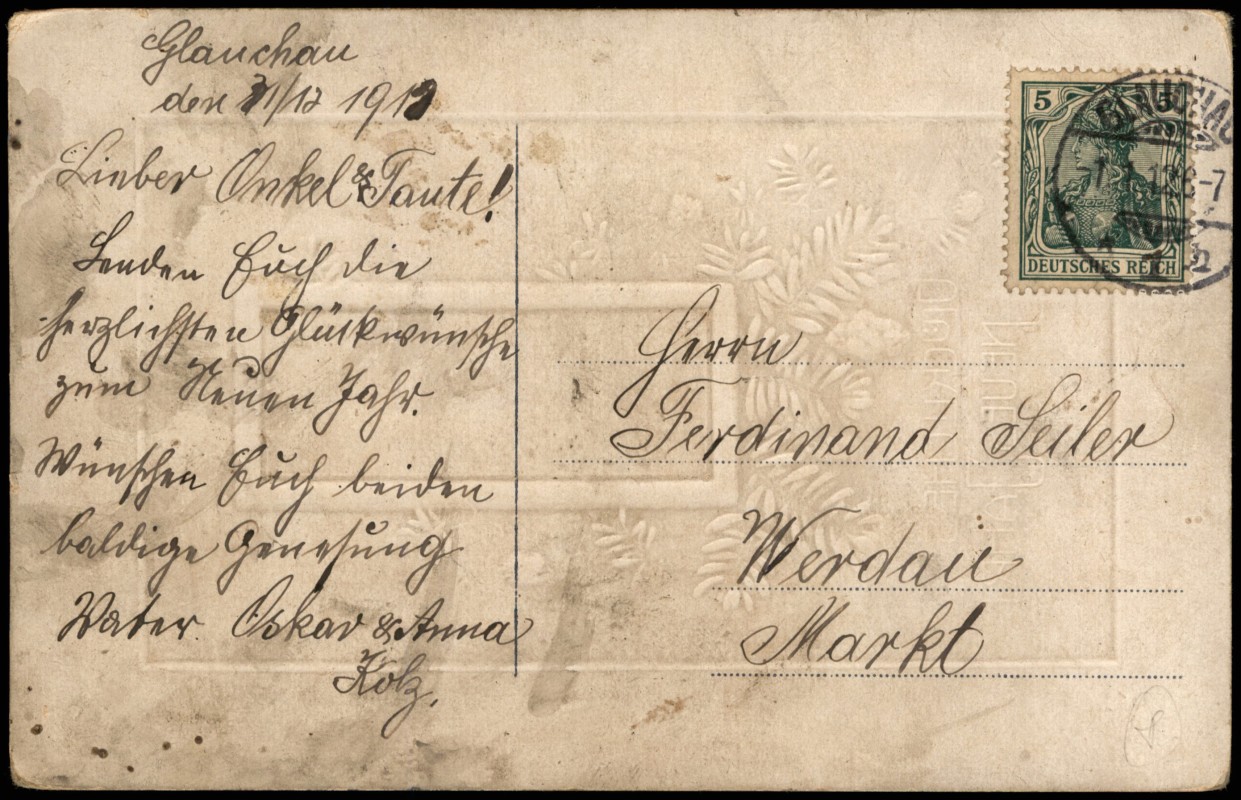 Glauchau
den 31/12 191
Lieber Onkel & Tante!
Senden Euch die
herzlichsten Glückwünsche
zum Neuen Jahr.
Wünschen Euch beiden
baldige Genesung
Vater Oskar & Anna
Kolz.
5 5
DEUTSCHES REICH
GLAUCHAU
Herrn
Ferdinand Seiler
Werdau
Markt